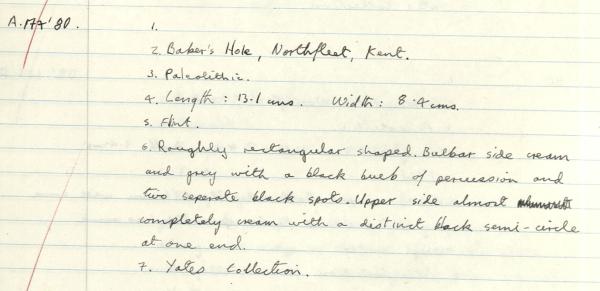 A.179'80. 1.
2. Baker's Hole, Northfleet, Kent.
3. Paleolithic.
4. Length : 13.1 cms. Width : 8.4 cms.
5. Flint.
6. Roughly rectangular shaped. Bulbar side cream
and grey with a black bulb of percussion and
two seperate black spots. Upper side almost
completely cream with a distinct black semi-circle
at one end.
7. Yates Collection.